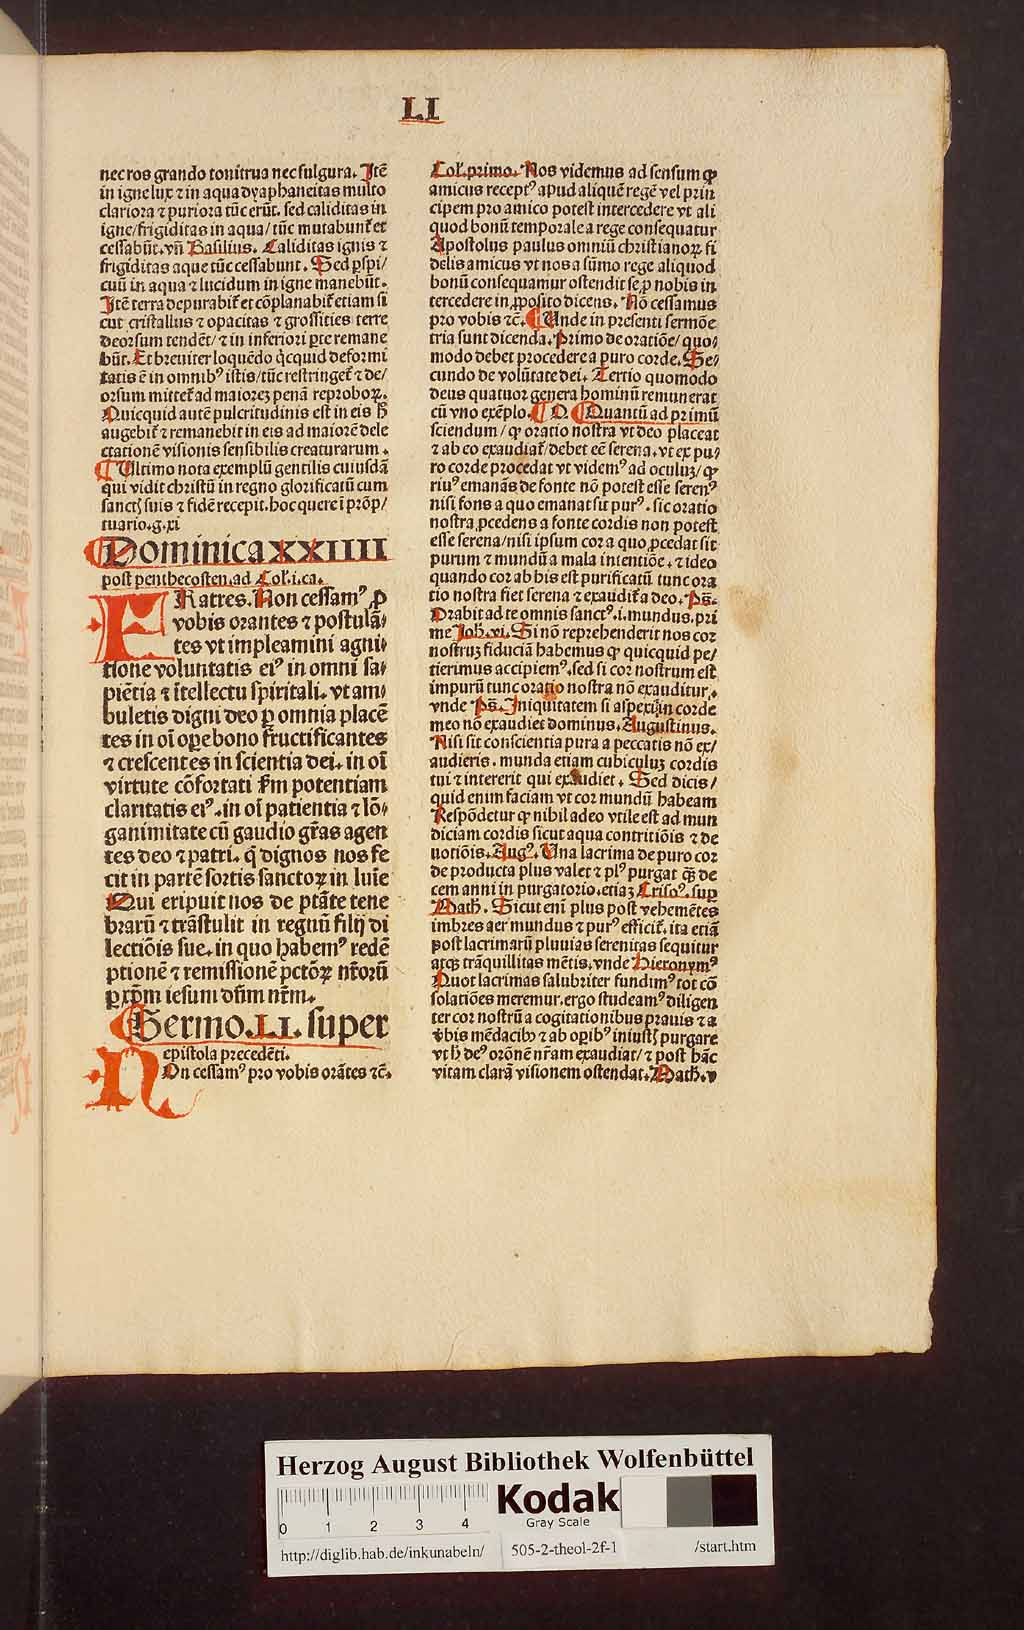 LI
nec ros grando tonitrua nec fulgura. Itē
in igne lux ⁊ in aqua dyaphaneitas multo
clariora ⁊ puriora tūc erūt. sed caliditas in
igne/ frigiditas in aqua/ tūc mutabunt̄ et
cessabūt. vñ Basilius. Caliditas ignis ⁊
frigiditas aque tūc cessabunt. Sed ꝑspi/
cuū in aqua ⁊ lucidum in igne manebūt.
Itē terra depurabit̄ et cōplanabit̄ etiam si
cut cristallus ⁊ opacitas ⁊ grossities terre
deorsum tendēt/ ⁊ in inferiori ꝑte remane
būt. Et breuiter loquēdo q̇cquid deformi
tatis ē in omnibꝰ istis/ tūc restringet̄ ⁊ de/
orsum mittet̄ ad maiorez penā reproboꝝ.
Quicquid autē pulcritudinis est in eis ħ
augebit̄ ⁊ remanebit in eis ad maiorē dele
ctationē visionis sensibilis creaturarum.
¶ Ultimo nota exemplū gentilis cuiusdā
qui vidit christū in regno glorificatū cum
sanctꝭ suis ⁊ fidē recepit. hoc quere ī prōp/
tuario. g. xi
Dominica XXIIII
post penthecosten. ad Col̄. i. ca.
FRatres. Non cessamꝰ ꝓ
vobis orantes ⁊ postulā/
tes vt impleamini agni/
tione voluntatis eiꝰ in omni sa/
piētia ⁊ ītellectu spiritali. vt am/
buletis digni deo ꝑ omnia placē
tes in oī oꝑe bono fructificantes
⁊ crescentes in scientia dei. in oī
virtute cōfortati ẜm potentiam
claritatis eiꝰ. in oī patientia ⁊ lō/
ganimitate cū gaudio gr̄as agen
tes deo ⁊ patri. q̄ dignos nos fe
cit in partē sortis sanctoꝝ in luīe
Qui eripuit nos de ptāte tene
brarū ⁊ trāstulit in regnū filij di
lectiōis sue. in quo habemꝰ redē
ptionē ⁊ remissionē pctōꝝ nr̄orū
ꝑ xp̄m iesum dn̄m nr̄m.
Sermo. LI. super
epistola precedēti.
NOn cessamꝰ pro vobis orātes ⁊c̄.
Col̄. primo. Nos videmus ad sensum ꝙ
amicus receptꝰ apud aliquē regē vel prin
cipem pro amico potest intercedere vt ali
quod bonū temporale a rege consequatur
Apostolus paulus omniū christianoꝝ fi
delis amicus vt nos a sūmo rege aliquod
bonū consequamur ostendit se ꝓ nobis in
tercedere in ꝓposito dicens. Nō cessamus
pro vobis ⁊c̄. ¶ Unde in presenti sermōe
tria sunt dicenda. Primo de oratiōe/ quo/
modo debet procedere a puro corde. Se/
cundo de volūtate dei. Tertio quomodo
deus quatuor genera hominū remunerat
cū vno exēplo. ¶ O. ¶ Quantū ad primū
sciendum/ ꝙ oratio nostra vt deo placeat
⁊ ab eo exaudiat̄/ debet eē serena. vt ex pu/
ro corde procedat vt videmꝰ ad oculuꝫ/ ꝙ
riuꝰ emanās de fonte nō potest esse serenꝰ
nisi fons a quo emanat sit purꝰ. sic oratio
nostra ꝓcedens a fonte cordis non potest
esse serena/ nisi ipsum cor a quo ꝓcedat sit
purum ⁊ mundū a mala intentiōe. ⁊ ideo
quando cor ab his est purificatū tunc ora
tio nostra fiet serena ⁊ exaudit̄ a deo. Pš.
Orabit ad te omnis sanctꝰ. i. mundus. pri
me Joh̄. vi. Si nō reprehenderit nos cor
nostruꝫ fiduciā habemus ꝙ quicquid pe/
tierimus accipiemꝰ. sed si cor nostrum est
impurū tunc oratio nostra nō exauditur.
vnde Pš. Iniquitatem si aspexi in corde
meo nō exaudiet dominus. Augustinus.
Nisi sit conscientia pura a peccatis nō ex/
audieris. munda etiam cubiculuꝫ cordis
tui ⁊ intererit qui exaudiet. Sed dicis/
quid enim faciam vt cor mundū habeam
Respōdetur ꝙ nihil adeo vtile est ad mun
diciam cordis sicut aqua contritiōis ⁊ de
uotiōis. Augꝰ. Una lacrima de puro cor
de producta plus valet ⁊ plꝰ purgat qꝫ̄ de
cem anni in purgatorio. etiaꝫ Crisoꝰ. suꝑ
Math̄. Sicut enī plus post vehemētes
imbres aer mundus ⁊ purꝰ efficit̄. ita etiā
post lacrimarū pluuias serenitas sequitur
atqꝫ trāquillitas mētis. vnde Hieronymꝰ
Quot lacrimas salubriter fundimꝰ tot cō
solatiōes meremur. ergo studeamꝰ diligen
ter cor nostrū a cogitationibus prauis ⁊ a
v̄bis mēdacibꝫ ⁊ ab oꝑibꝰ iniustꝭ purgare
vt ħ deꝰ orōnē nr̄am exaudiat/ ⁊ post hāc
vitam clarā visionem ostendat. Math̄. v
Herzog August Bibliothek Wolfenbüttel
0 1 2 3 4
Kodak
Gray Scale
http://diglib.hab.de/inkunabeln/ 505-2-theol-2f-1 /start.htm